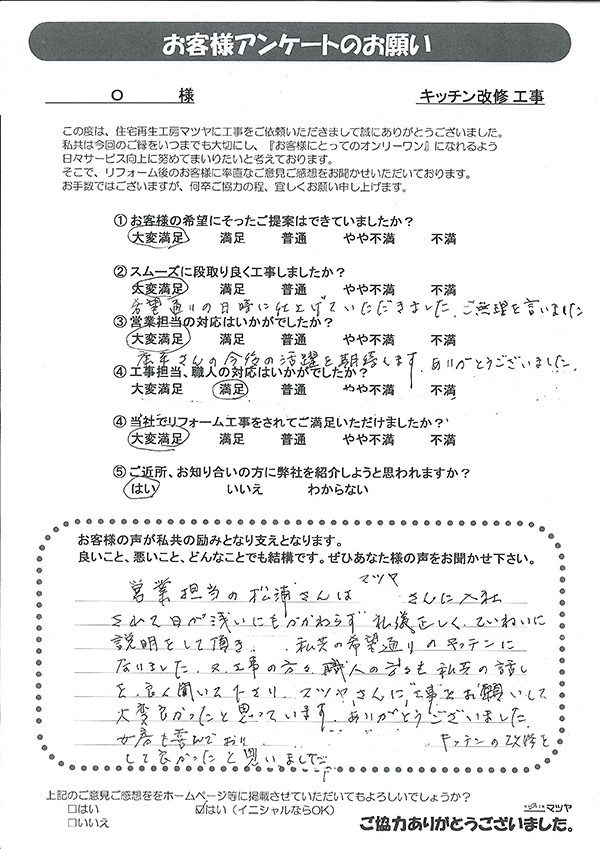 お客様アンケートのお願い
O 様 キッチン改修 工事
この度は、住宅再生工房マツヤに工事をご依頼いただきまして誠にありがとうございました。
私共は今回のご縁をいつまでも大切にし、『お客様にとってのオンリーワン』になれるよう
日々サービス向上に努めてまいりたいと考えております。
そこで、リフォーム後のお客様に率直なご意見ご感想をお聞かせいただいております。
お手数ではございますが、何卒ご協力の程、宜しくお願い申し上げます。
① お客様の希望にそったご提案はできていましたか？
大変満足 満足 普通 やや不満 不満
② スムーズに段取り良く工事しましたか？
大変満足 満足 普通 やや不満 不満
希望通りの日時に仕上げていただきました、ご無理を言いました
③ 営業担当の対応はいかがでしたか？
大変満足 満足 普通 やや不満 不満
さんの今後の活躍を期待します、ありがとうございました。
④ 工事担当、職人の対応はいかがでしたか？
大変満足 満足 普通 やや不満 不満
④ 当社でリフォーム工事をされてご満足いただけましたか？
大変満足 満足 普通 やや不満 不満
⑤ ご近所、お知り合いの方に弊社を紹介しようと思われますか？
はい いいえ わからない
お客様の声が私共の励みとなり支えとなります。
良いこと、悪いこと、どんなことでも結構です。ぜひあなた様の声をお聞かせ下さい。
営業担当の松浦さんは マツヤ さんに入社
されて日が浅いにもかかわらず 礼儀正しく、ていねいに
説明をして頂き、私共の希望通りのキッチンに
なりました、又、工事の方々、職人の方々も私共の話し
を、良く聞いて下さり、マツヤさんに工事をお願いして
大変良かったと思っています、ありがとうございました、
女房も喜んでおり キッチンの改修を
して良かったと思いました
上記のご意見ご感想ををホームページ等に掲載させていただいてもよろしいでしょうか？
□はい ☑はい（イニシャルならOK）
□いいえ
マツヤ
ご協力ありがとうございました。